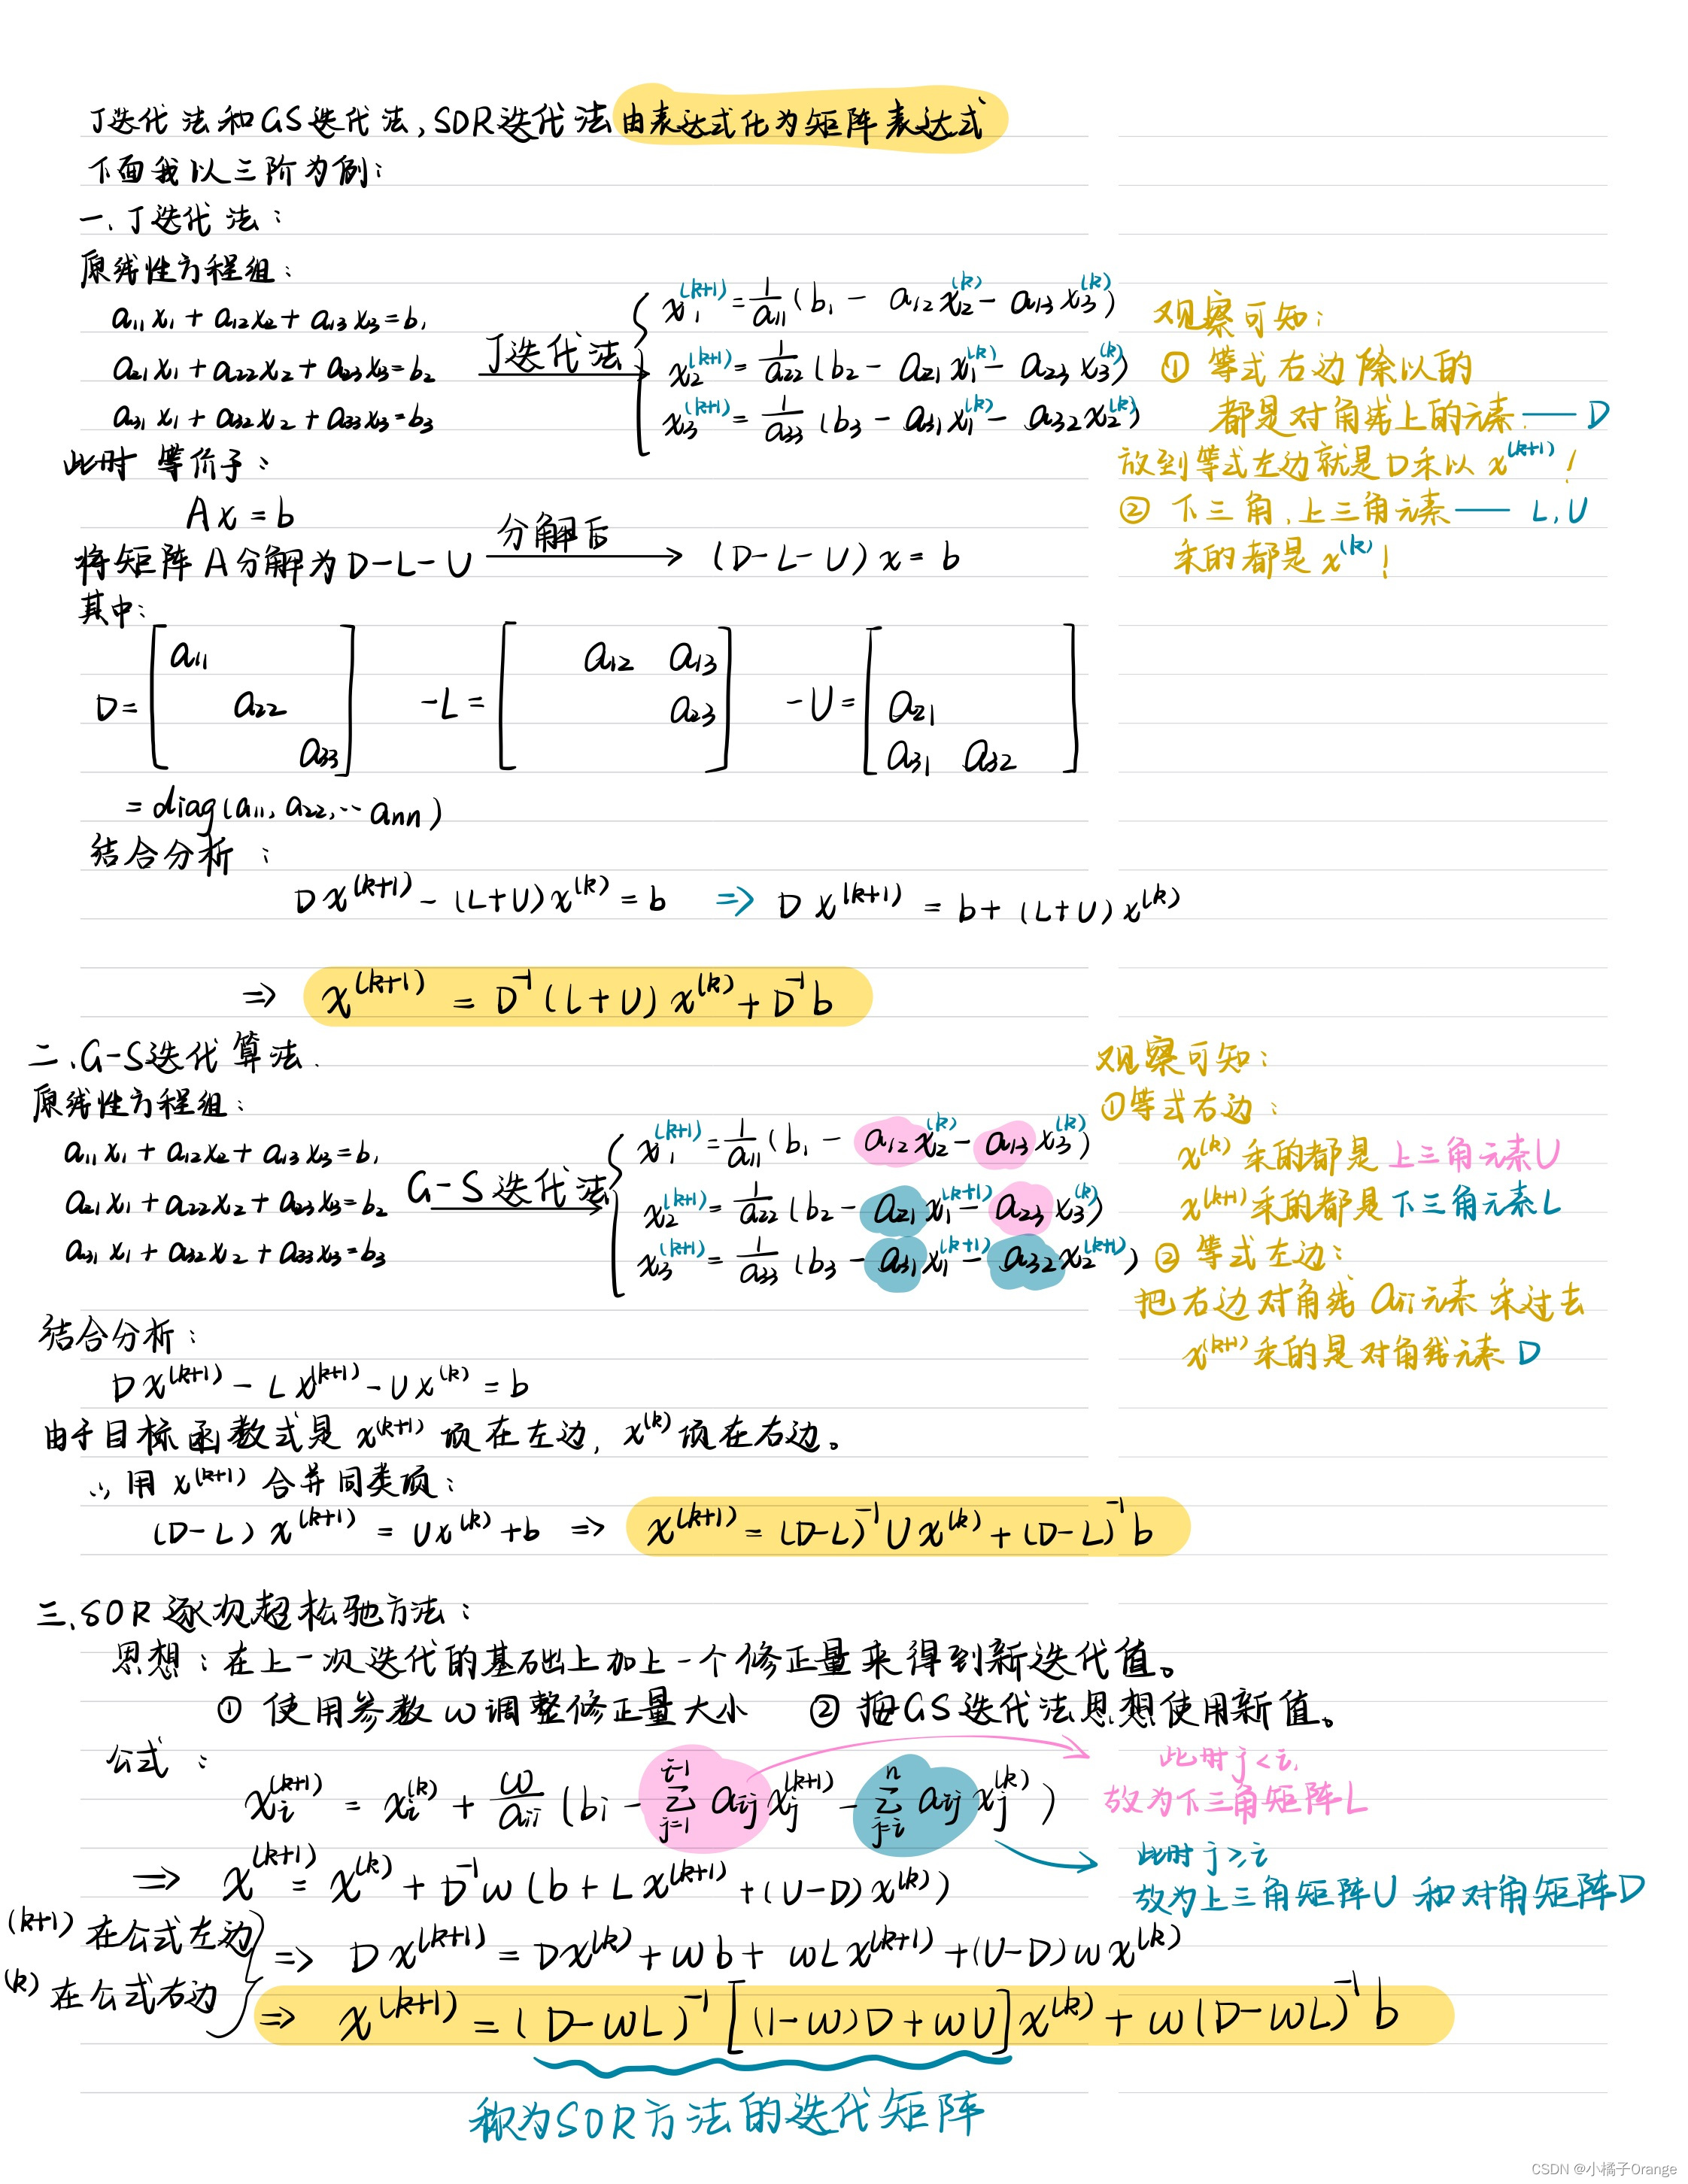 J迭代法和GS迭代法,SOR迭代法由表达式化为矩阵表达式
下面我以三阶为例:
一.J迭代法:
原线性方程组:
a₁₁x₁+a₁₂x₂+a₁₃x₃=b₁
a₂₁x₁+a₂₂x₂+a₂₃x₃=b₂
a₃₁x₁+a₃₂x₂+a₃₃x₃=b₃
J迭代法
x₁^(k+1)=1/a₁₁(b₁-a₁₂x₂^(k)-a₁₃x₃^(k))
x₂^(k+1)=1/a₂₂(b₂-a₂₁x₁^(k)-a₂₃x₃^(k))
x₃^(k+1)=1/a₃₃(b₃-a₃₁x₁^(k)-a₃₂x₂^(k))
观察可知:
① 等式右边除以的
都是对角线上的元素——D
放到等式左边就是D乘以x^(k+1)!
② 下三角,上三角元素——L,U
乘的都是x^(k)!
此时等价于:
Ax=b
将矩阵A分解为D-L-U 分解后→ (D-L-U)x=b
其中:
D=[a₁₁ a₂₂ a₃₃] -L=[a₁₂ a₁₃ a₂₃] -U=[a₂₁ a₃₁ a₃₂]
=diag(a₁₁,a₂₂,…aₙₙ)
结合分析:
Dx^(k+1)-(L+U)x^(k)=b ⇒ Dx^(k+1)=b+(L+U)x^(k)
⇒ x^(k+1)=D⁻¹(L+U)x^(k)+D⁻¹b
二.G-S迭代算法.
原线性方程组:
a₁₁x₁+a₁₂x₂+a₁₃x₃=b₁
a₂₁x₁+a₂₂x₂+a₂₃x₃=b₂
a₃₁x₁+a₃₂x₂+a₃₃x₃=b₃
G-S迭代法
x₁^(k+1)=1/a₁₁(b₁-a₁₂x₂^(k)-a₁₃x₃^(k))
x₂^(k+1)=1/a₂₂(b₂-a₂₁x₁^(k+1)-a₂₃x₃^(k))
x₃^(k+1)=1/a₃₃(b₃-a₃₁x₁^(k+1)-a₃₂x₂^(k+1))
观察可知:
①等式右边:
x^(k)乘的都是上三角元素U
x^(k+1)乘的都是下三角元素L
② 等式左边:
把右边对角线aᵢᵢ元素乘过去
x^(k+1)乘的是对角线元素D
结合分析:
Dx^(k+1)-Lx^(k+1)-Ux^(k)=b
由于目标函数式是x^(k+1)项在左边,x^(k)项在右边。
∴用x^(k+1)合并同类项:
(D-L)x^(k+1)=Ux^(k)+b ⇒ x^(k+1)=(D-L)⁻¹Ux^(k)+(D-L)⁻¹b
三.SOR逐次超松弛方法:
思想:在上一次迭代的基础上加上一个修正量来得到新迭代值。
① 使用参数ω调整修正量大小 ② 按GS迭代法思想使用新值。
公式:
xᵢ^(k+1)=xᵢ^(k)+ω/aᵢᵢ(bᵢ-∑_{j=1}^{i-1}aᵢⱼxⱼ^(k+1)-∑_{j=i}^{n}aᵢⱼxⱼ^(k))
此时j<i,
故为下三角矩阵L
此时j≥i
故为上三角矩阵U和对角矩阵D
⇒ x^(k+1)=x^(k)+D⁻¹ω(b+Lx^(k+1)+(U-D)x^(k))
(k+1)在公式左边
(k)在公式右边
⇒ Dx^(k+1)=Dx^(k)+ωb+ωLx^(k+1)+(U-D)ωx^(k)
⇒ x^(k+1)=(D-ωL)⁻¹[(1-ω)D+ωU]x^(k)+ω(D-ωL)⁻¹b
称为SOR方法的迭代矩阵
CSDN @小橘子Orange